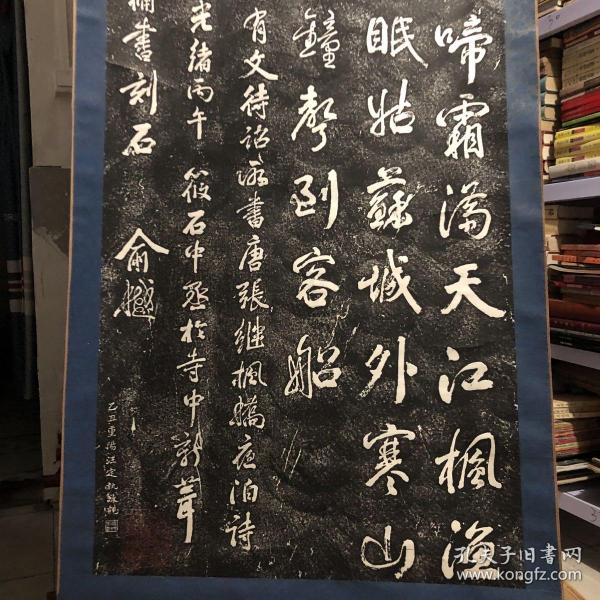 啼霜满天江枫渔
眠姑蘇城外寒山
鐘聲到客船
有文待詔所書唐張继枫橋夜泊詩
光緒丙午 筱石中丞於寺中新葺
補書刻石
俞樾
孔夫子旧书网
www.kongfz.com